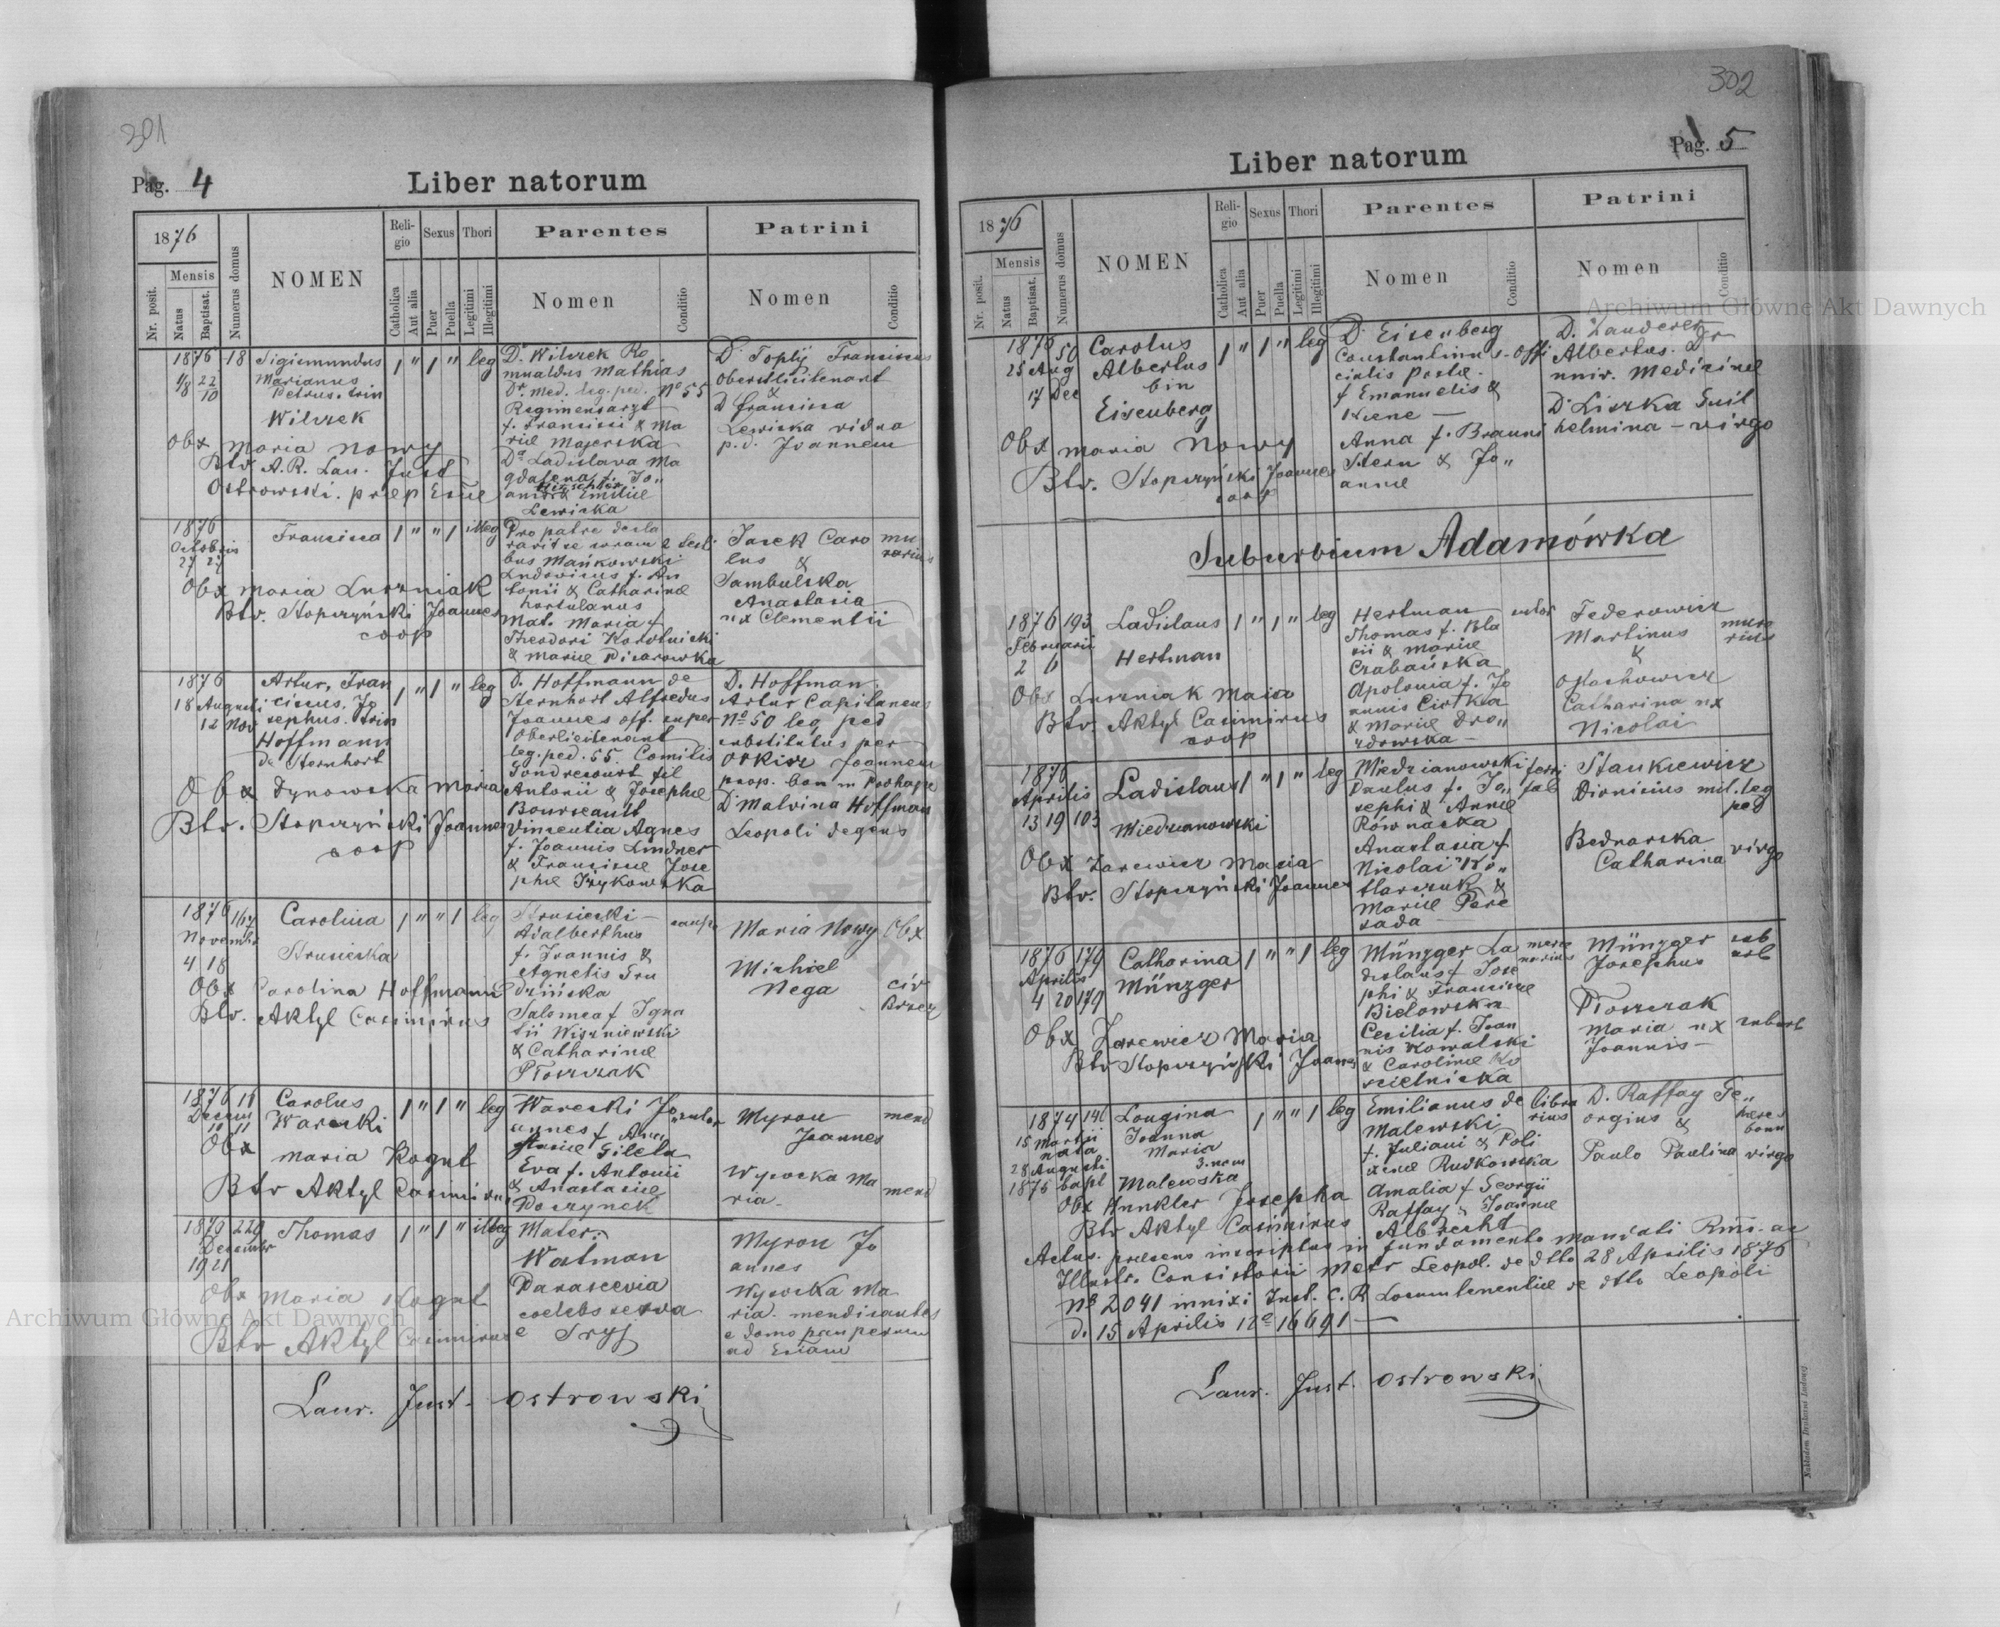 301
Pag. 4
Liber natorum
1876
Mensis
Nr. posit.
Natus
Baptisat.
Numerus domus
NOMEN
Reli-
gio
Sexus
Thori
Catholica
Aut alia
Puer
Puella
Legitimi
Illegitimi
Parentes
Patrini
Nomen
Conditio
Nomen
Conditio
1876 18 Sigismundus 1 " 1 " leg
4/8 22/10 Marianus
Petrus. trin
Wilczek
Obx Maria Nowy
Btv A.R. Lau. Just
Ostrowski. praep Eccae
Dr Wilczek Ro
mualdus Mathias
Dr. Med. leg. ped. No 55
Regimensarzt
f. Francisci & Ma
riae Majerska
Da Ladislava Ma
gdalena f. Jo"
annis & Emiliae
Lewicka
D. Toply Franciscus
Oberstlieitenant
&
D Francisca
Lewicka vidua
p. d. Joannem
1876
Octobris
27 27
Francisca 1 " " 1 illeg
Obx Maria Luszniak
Btv. Stopczyński Joannes
coop
Pro patre decla
ravit se coram 2 testi
bus Mańkowski
Ludovicus f. An
tonii & Catharinae
hortulanus
Mat. Maria f
Theodori Kolotnicki
& Mariae Pisarowka
Jasek Caro
lus &
Sambulska
Anastasia
ux Clementii
mu
rarius
1876
18 Augusti
12 Nov
Artur, Fran
ciscus, Jo
sephus. trin
Hoffmann
de Sternhort
1 " 1 " leg
Obx Dynowska Maria
Btv. Stopczyński Joannes
coop
D. Hoffmann de
Sternhort Alfredus
Joannes off. super
Oberlieitenant
leg. ped. 55. Comitis
Gondrecourt fil
Antonii & Josephae
Bourseault
Vincentia Agnes
f. Joannis Lindner
& Franciscae Jose
phae Trzykowska
D. Hoffman
Artur Capitaneus
No 50 leg ped
substitutus per
Orkisz Joannem
prop. bon in Podhajce
D Malvina Hoffman
Leopoli degens
1876 167
Novembr
4 18
Carolina 1 " " 1 leg
Strusieska
Obx Carolina Hoffmann
Btv. Aktyl Casimirus
Strusiecki
Adalberthus
f. Joannis &
Agnetis Gru
dzińska
Salomea f Igna
tii Wiszniewski
& Catharinae
Ptoszczak
Maria Nowy Obx
Michael
Nega civ
Brzez
1876 11
Decem
10 11
Carolus
Warecki 1 " 1 " leg
Obx Maria Kogut
Btv Aktyl Casimirus
Warecki Jo
annes f. Ana
stasiae Gileta
Eva f. Antonii
& Anastasiae
Paszynek
sutor
Myron
Joannes
mend
Wysocka Ma
ria
mend
1876 229
Decembr
19 21
Thomas 1 " 1 " illeg
Obx Maria Kogut
Btv Aktyl Casimirus
Mater:
Watman
Parascevia
coelebs serva
e Tryj
Myron Jo
annes
Wysocka Ma
ria. mendicantes
e domo pauperum
ad Eccam
Laur. Just. Ostrowski
302
Pag. 5
Liber natorum
1876
Mensis
Nr. posit.
Natus
Baptisat.
Numerus domus
NOMEN
Reli-
gio
Sexus
Thori
Catholica
Aut alia
Puer
Puella
Legitimi
Illegitimi
Parentes
Patrini
Nomen
Conditio
Nomen
Conditio
1876 50
25 Aug
17 Dec
Carolus
Albertus
bin
Eisenberg
1 " 1 " leg
Obx Maria Nowy
Btv. Stopczyński Joannes
coop
D Eisenberg
Constantinus - offi
cialis postae
f Emanuelis &
Irene
Anna f. Brauni
Stern & Jo"
annae
D. Zauderer
Albertus. Dr
univ. Medicinae
D Liszka Guil
helmina - virgo
Suburbium Adamówka
1876 193
Februarii
2 6
Ladislaus 1 " 1 " leg
Hertman
Obx Luszniak Maria
Btv. Aktyl Casimirus
coop
Hertman
Thomas f. Bla
sii & Mariae
Czabańska
Apolonia f. Jo
annis Cirtka
& Mariae Dro"
zdowska
sutor
Federowicz
Martinus
&
Stachowicz
Catharina ux
Nicolai
mura
rius
1876
Aprilis
13 19 103
Ladislaus 1 " 1 " leg
Miedzianowski
Obx Zarewicz Maria
Btv. Stopczyński Joannes
Miedzianowski
Paulus f. Jo"
sephi & Annae
Równacka
Anastasia f
Nicolai Ko"
tlarczuk &
Mariae Pere
sada
ferri
fab
Stankiewicz
Dionisius mil. leg
ped
Bednarska
Catharina virgo
1876 179
Aprilis
4 20 179
Catharina 1 " " 1 leg
Münzger
Obx Zarewicz Maria
Btv Stopczyński Joannes
Münzger La
dislaus f Jose
phi & Franciscae
Bielowska
Cecilia f. Joan
nis Kowalski
& Carolinae Ko
scielnicka
Münzger
Josephus
Ptoszczak
Maria ux
Joannis
suburb
1874 146
15 Martii
nata
28 Augusti
1875 bapt
Longina
Joanna
Maria
3. nom
Malewska
1 " " 1 leg
Obx Hunkler Josepha
Btv Aktyl Casimirus
Emilianus de
Malewski
f. Juliani & Poli
xenae Rudkowska
Amalia f Georgii
Raffay & Joannae
Albrecht
libra
rius
D. Raffay Ge"
orgius &
Paulo Paulina virgo
heres
bonn
Actus praesens inscriptus in fundamento mandati Rmi. ac
Illustr. Consistorii Metr Leopol. de dtto 28 Aprilis 1876
No 2041 innixi Inst. C. R Locumtenentiae de dtto Leopoli
d. 15 Aprilis 12e 16691
Laur. Just. Ostrowski
Nakładem Drukarni Ludowej
Archiwum Główne Akt Dawnych
Archiwum Główne Akt Dawnych